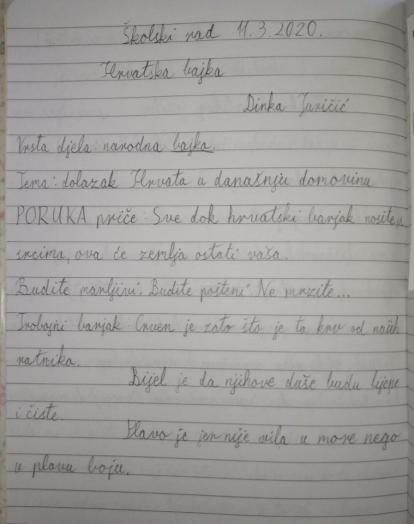 Školski rad 11.3.2020.
Hrvatska bajka
Dinka Juričić
Vrsta djela: narodna bajka.
Tema: dolazak Hrvata u današnju domovinu
PORUKA priče: Sve dok hrvatski barjak nosite u
srcima, ova će zemlja ostati vaša.
Budite marljivi. Budite pošteni. Ne mrzite...
Trobojni barjak: Crven je zato što je ta krv od naših
ratnika.
Bijel je da njihove duše budu lijepe
i čiste.
Plavo je jer nije vila u more nego
u plavu boju.